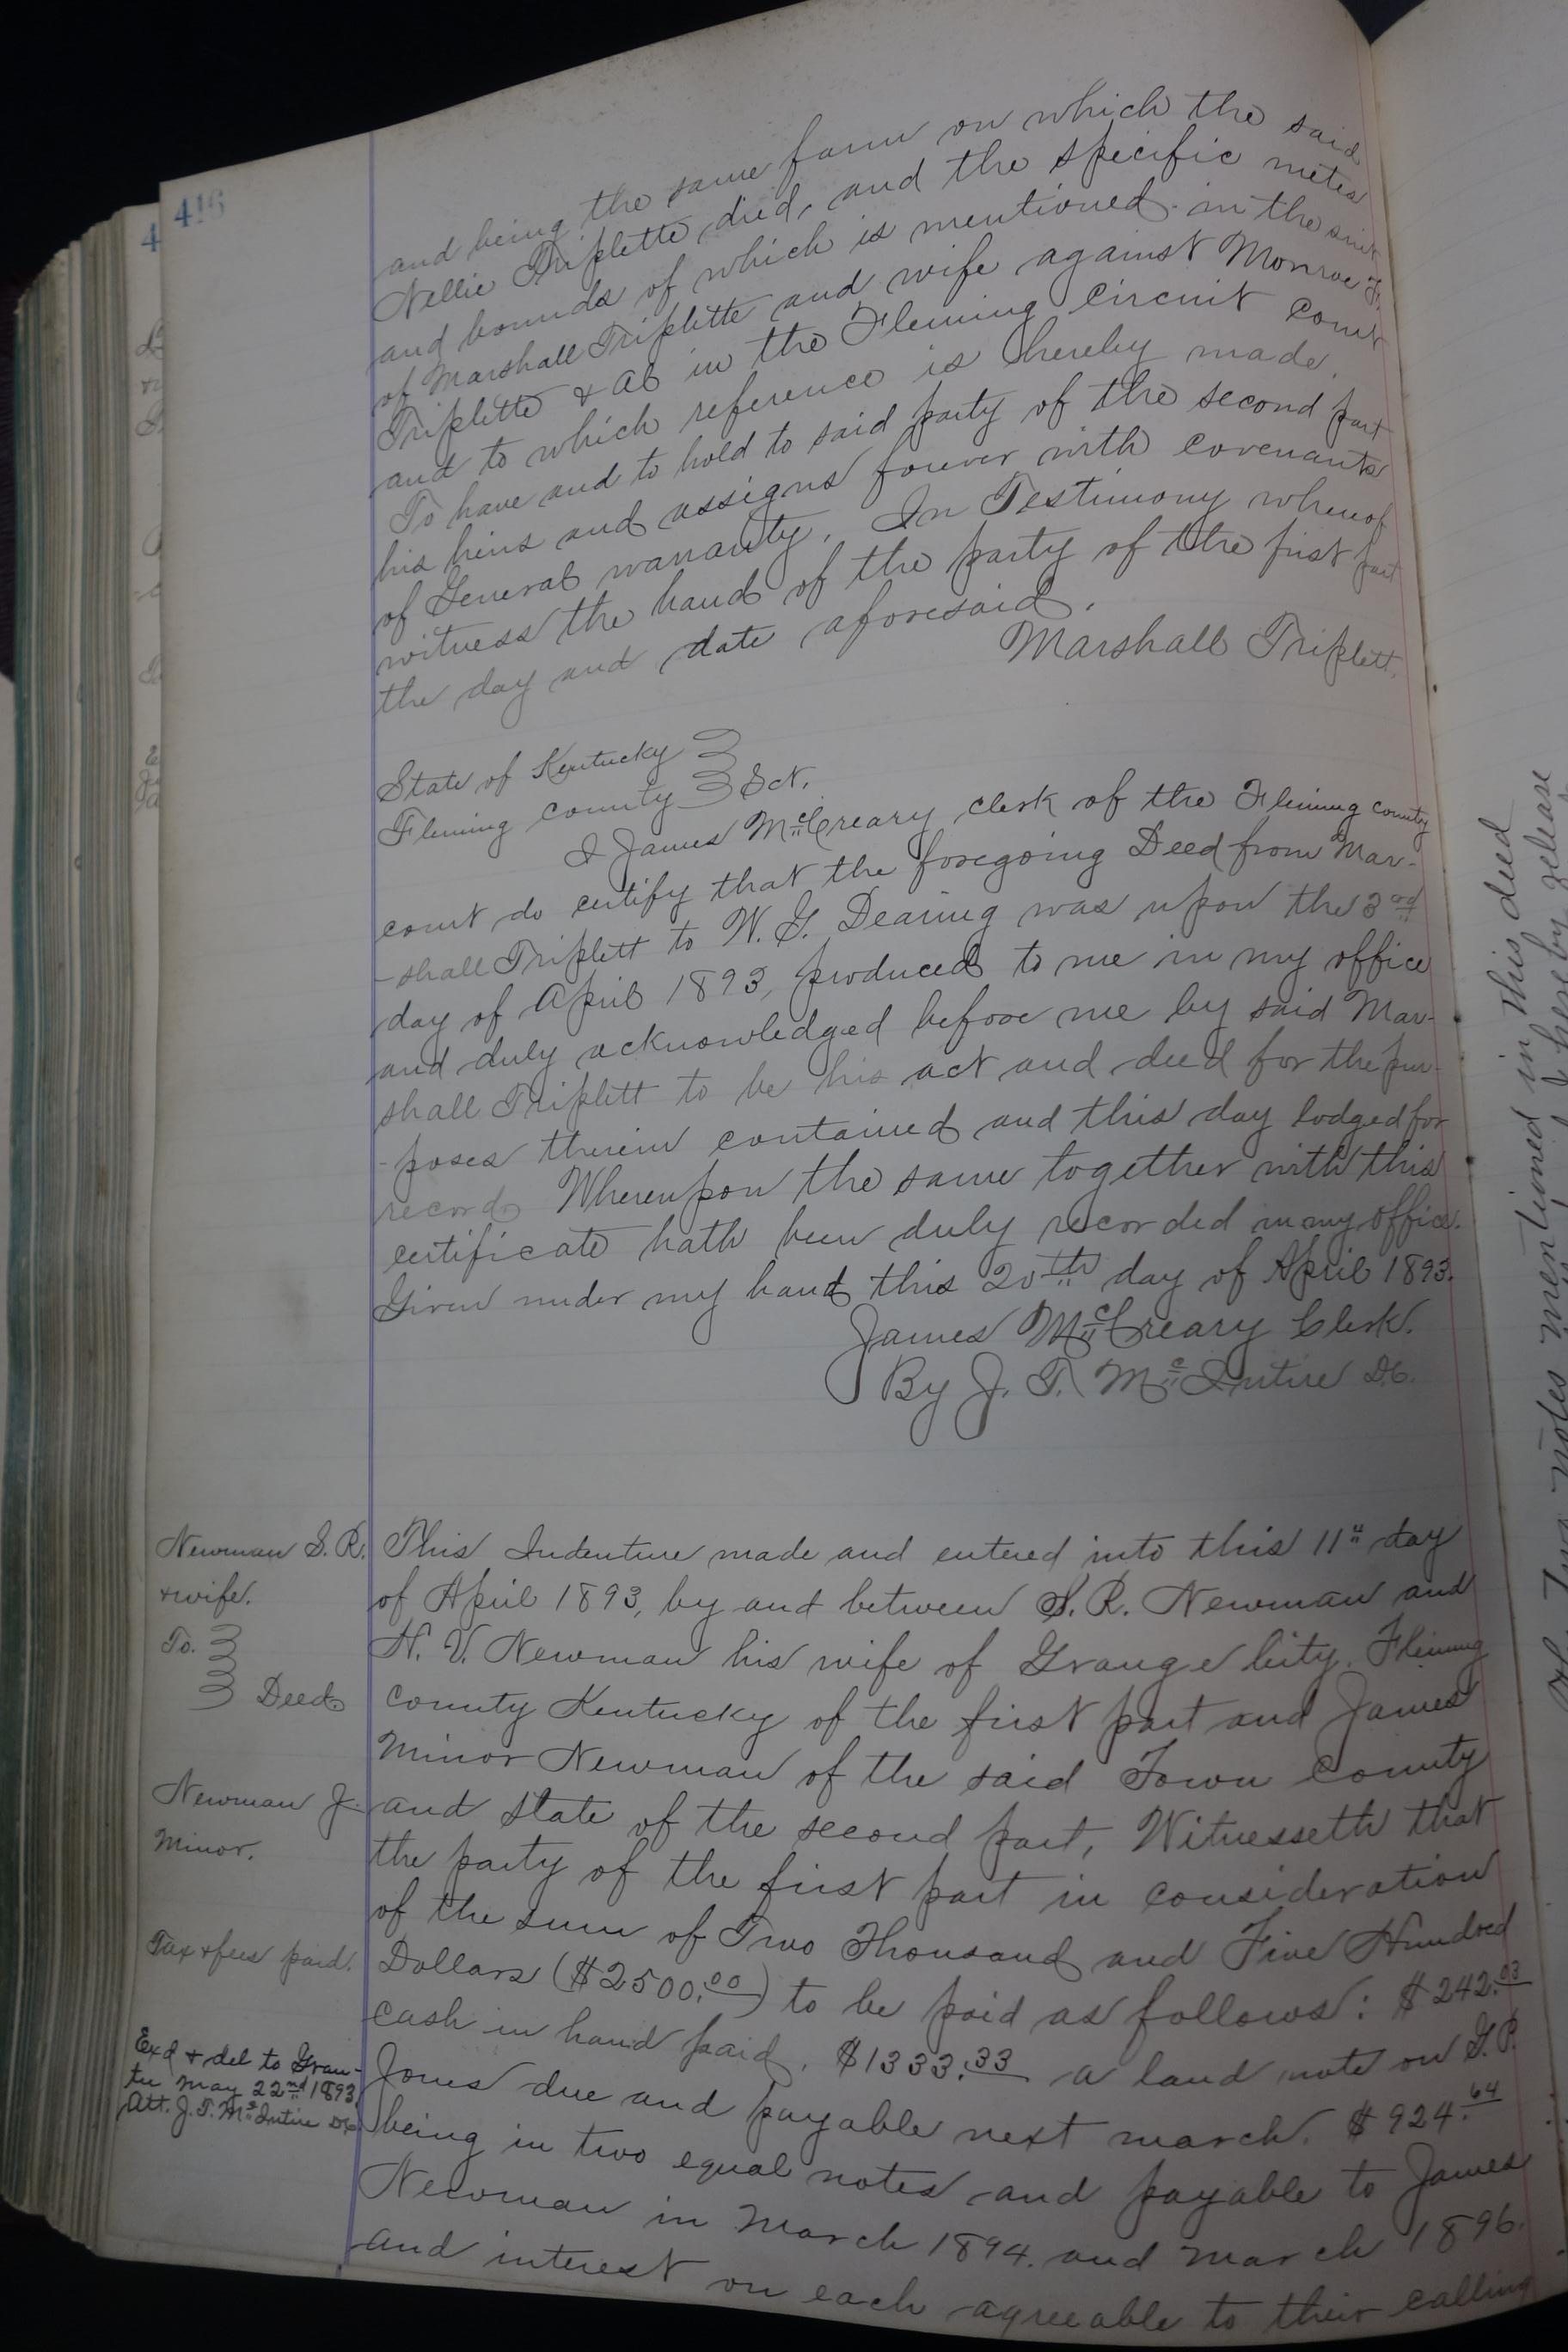 416
and being the same farm on which the said
Nellie Triplette died, and the specific metes
and bounds of which is mentioned in the suit
of Marshall Triplette and wife against Monroe F.
Triplette & Al in the Fleming Circuit Court
and to which reference is hereby made.
To have and to hold to said party of the second part
his heirs and assigns forever with covenants
of General warranty. In Testimony whereof
witness the hand of the party of the first part
the day and date aforesaid.
Marshall Triplett.
State of Kentucky
Fleming County Sct.
I James McCreary clerk of the Fleming county
court do certify that the foregoing Deed from Mar-
-shall Triplett to W. G. Dearing was upon the 3rd
day of April 1893, produced to me in my office
and duly acknowledged before me by said Mar-
shall Triplett to be his act and deed for the pur-
-poses therein contained and this day lodged for
record. Whereupon the same together with this
certificate hath been duly recorded in my office.
Given under my hand this 20th day of April 1893.
James McCreary Clerk.
By J. T. McIntire D.C.
Newman S. R.
& wife.
To.
Deed
Newman J.
Minor.
Tax & fees paid.
Exd & del to Gran-
tee May 22nd 1893
Att. J. T. McIntire DC
This Indenture made and entered into this 11" day
of April 1893, by and between S. R. Newman and
N. V. Newman his wife of Grange City, Fleming
county Kentucky of the first part and James
Minor Newman of the said Town County
and State of the second part, Witnesseth that
the party of the first part in consideration
of the sum of Two Thousand and Five Hundred
Dollars ($2500.00) to be paid as follows: $242.03
cash in hand paid. $1333.33 a land note on G. P.
Jones due and payable next march. $924.64
being in two equal notes and payable to James
Newman in March 1894. and March 1896.
and interest on each agreeable to their calling
notes mentioned in this deed
hereby release